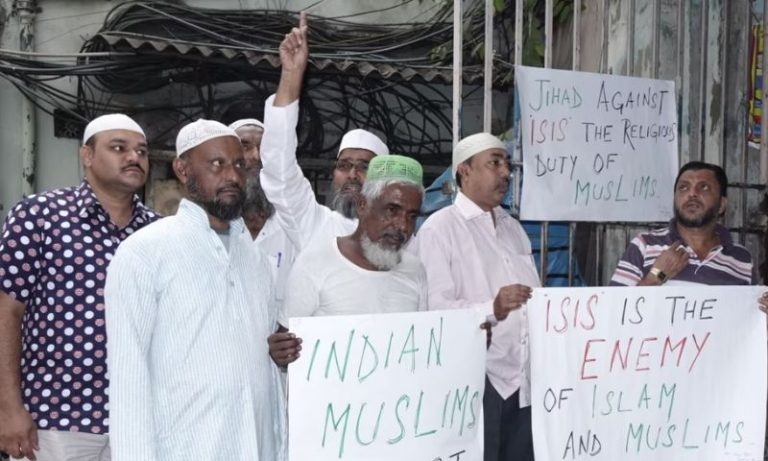 JIHAD AGAINST
ISIS THE RELIGIOUS
DUTY OF
MUSLIMS.
INDIAN
MUSLIMS
ISIS IS THE
ENEMY
OF ISLAM
AND MUSLIMS.